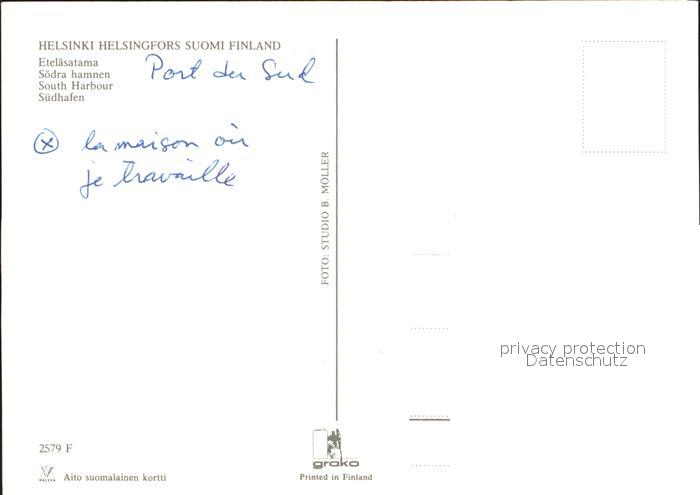 HELSINKI HELSINGFORS SUOMI FINLAND
Eteläsatama
Södra hamnen
South Harbour
Südhafen
Port du Sud
x la maison où
je travaille
FOTO: STUDIO B. MÖLLER
privacy protection
Datenschutz
2579 F
Aito suomalainen kortti
grako
Printed in Finland